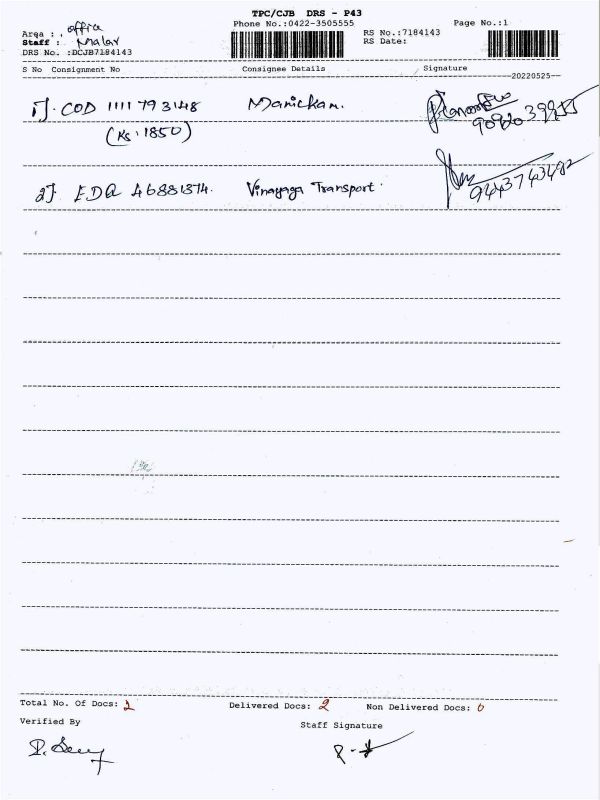 TPC/CJB DRS - P43
Area : . office
Phone No.:0422-3505555
RS No.:7184143
Page No.:1
Staff : Malar
RS Date:
DRS No. :DCJB7184143
S No Consignment No Consignee Details Signature
20220525
1]. COD 1111793148 Manickam.
(Rs. 1850)
2] EDQ 46881374. Vinayaga Transport.
9443743482
Total No. Of Docs: 2 Delivered Docs: 2 Non Delivered Docs: 0
Verified By Staff Signature